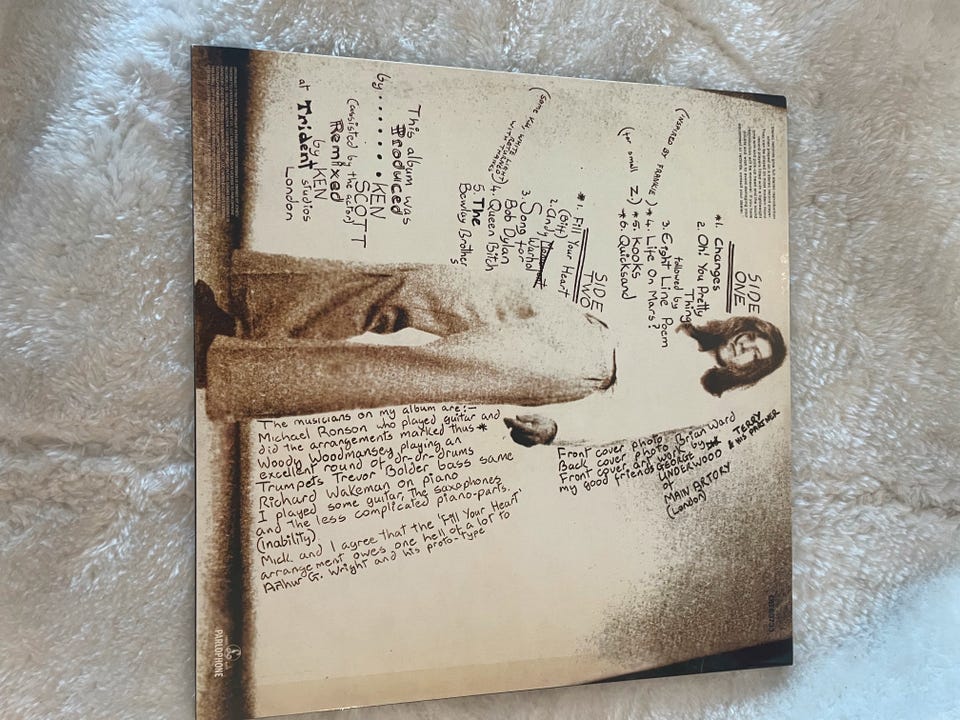 SIDE
ONE
*1. Changes
2. Oh! You Pretty
Things
followed by
3. Eight Line Poem
*4. Life On Mars?
*5. Kooks
*6. Quicksand
(INSPIRED BY FRANKIE)
(for small Z.)
SIDE
TWO
*1. Fill Your Heart
(Biff)
2. Andy Warhol
3. Song for
Bob Dylan
4. Queen Bitch
5. The
Bewlay Brothers
(Some V.U. WHITE
LIGHT RETURNED
WITH THANKS)
This album was
Produced
by.......KEN
SCOTT
(assisted by the actor)
Remixed
by KEN
at Trident studios
London
Front cover photo Brian Ward
Back cover photo
Front cover art work by
my good friends GEORGE
UNDERWOOD
TERRY
& HIS PARTNER
of
MAIN ARTORY
(London)
The musicians on my album are:-
Michael Ronson who played guitar and
did the arrangements marked thus *
Woody Woodmansey playing an
excellent round of dr-dr-drums
Trumpets Trevor Bolder bass same
Richard Wakeman on piano
I played some guitar, the saxophones
and the less complicated piano-parts.
(inability)
Mick and I agree that the 'Fill Your Heart'
arrangement owes one hell of a lot to
Arthur G. Wright and his proto-type
PARLOPHONE